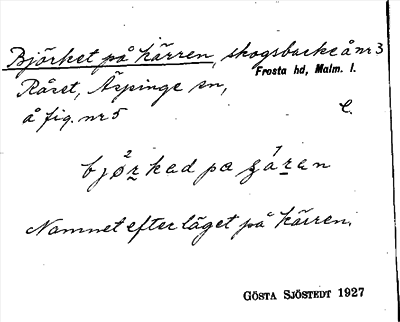 Björket på kärren, skogsbacke å nr 3
Frosta hd, Malm. l.
Råret, Äspinge sn,
å fig. nr 5 l.
Namnet efter läget på kärren.
GÖSTA SJÖSTEDT 1927